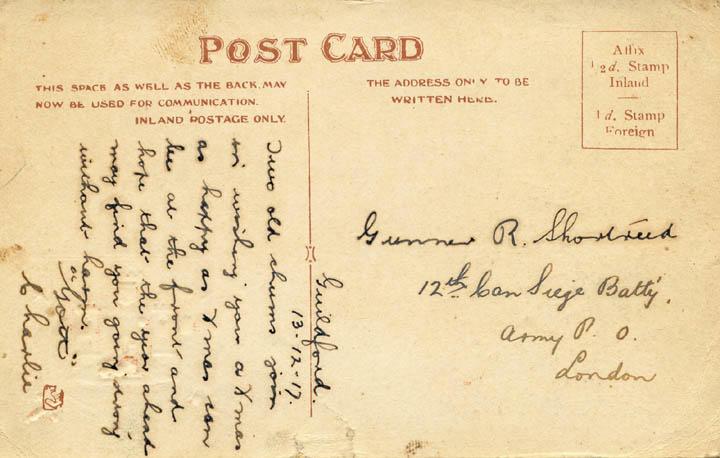 POST CARD
THIS SPACE AS WELL AS THE BACK MAY
NOW BE USED FOR COMMUNICATION.
INLAND POSTAGE ONLY.
THE ADDRESS ONLY TO BE
WRITTEN HERE.
Affix
½d. Stamp
Inland
1d. Stamp
Foreign
Guildford.
13-12-17.
Two old chums join
in wishing you a Xmas
as happy as Xmas can
be at the front and
hope that the year ahead
may find you going strong
without harm.
"Gott"
Charlie
Gunner R. Shortreed
12th Can Siege Batty.
Army P. O.
London